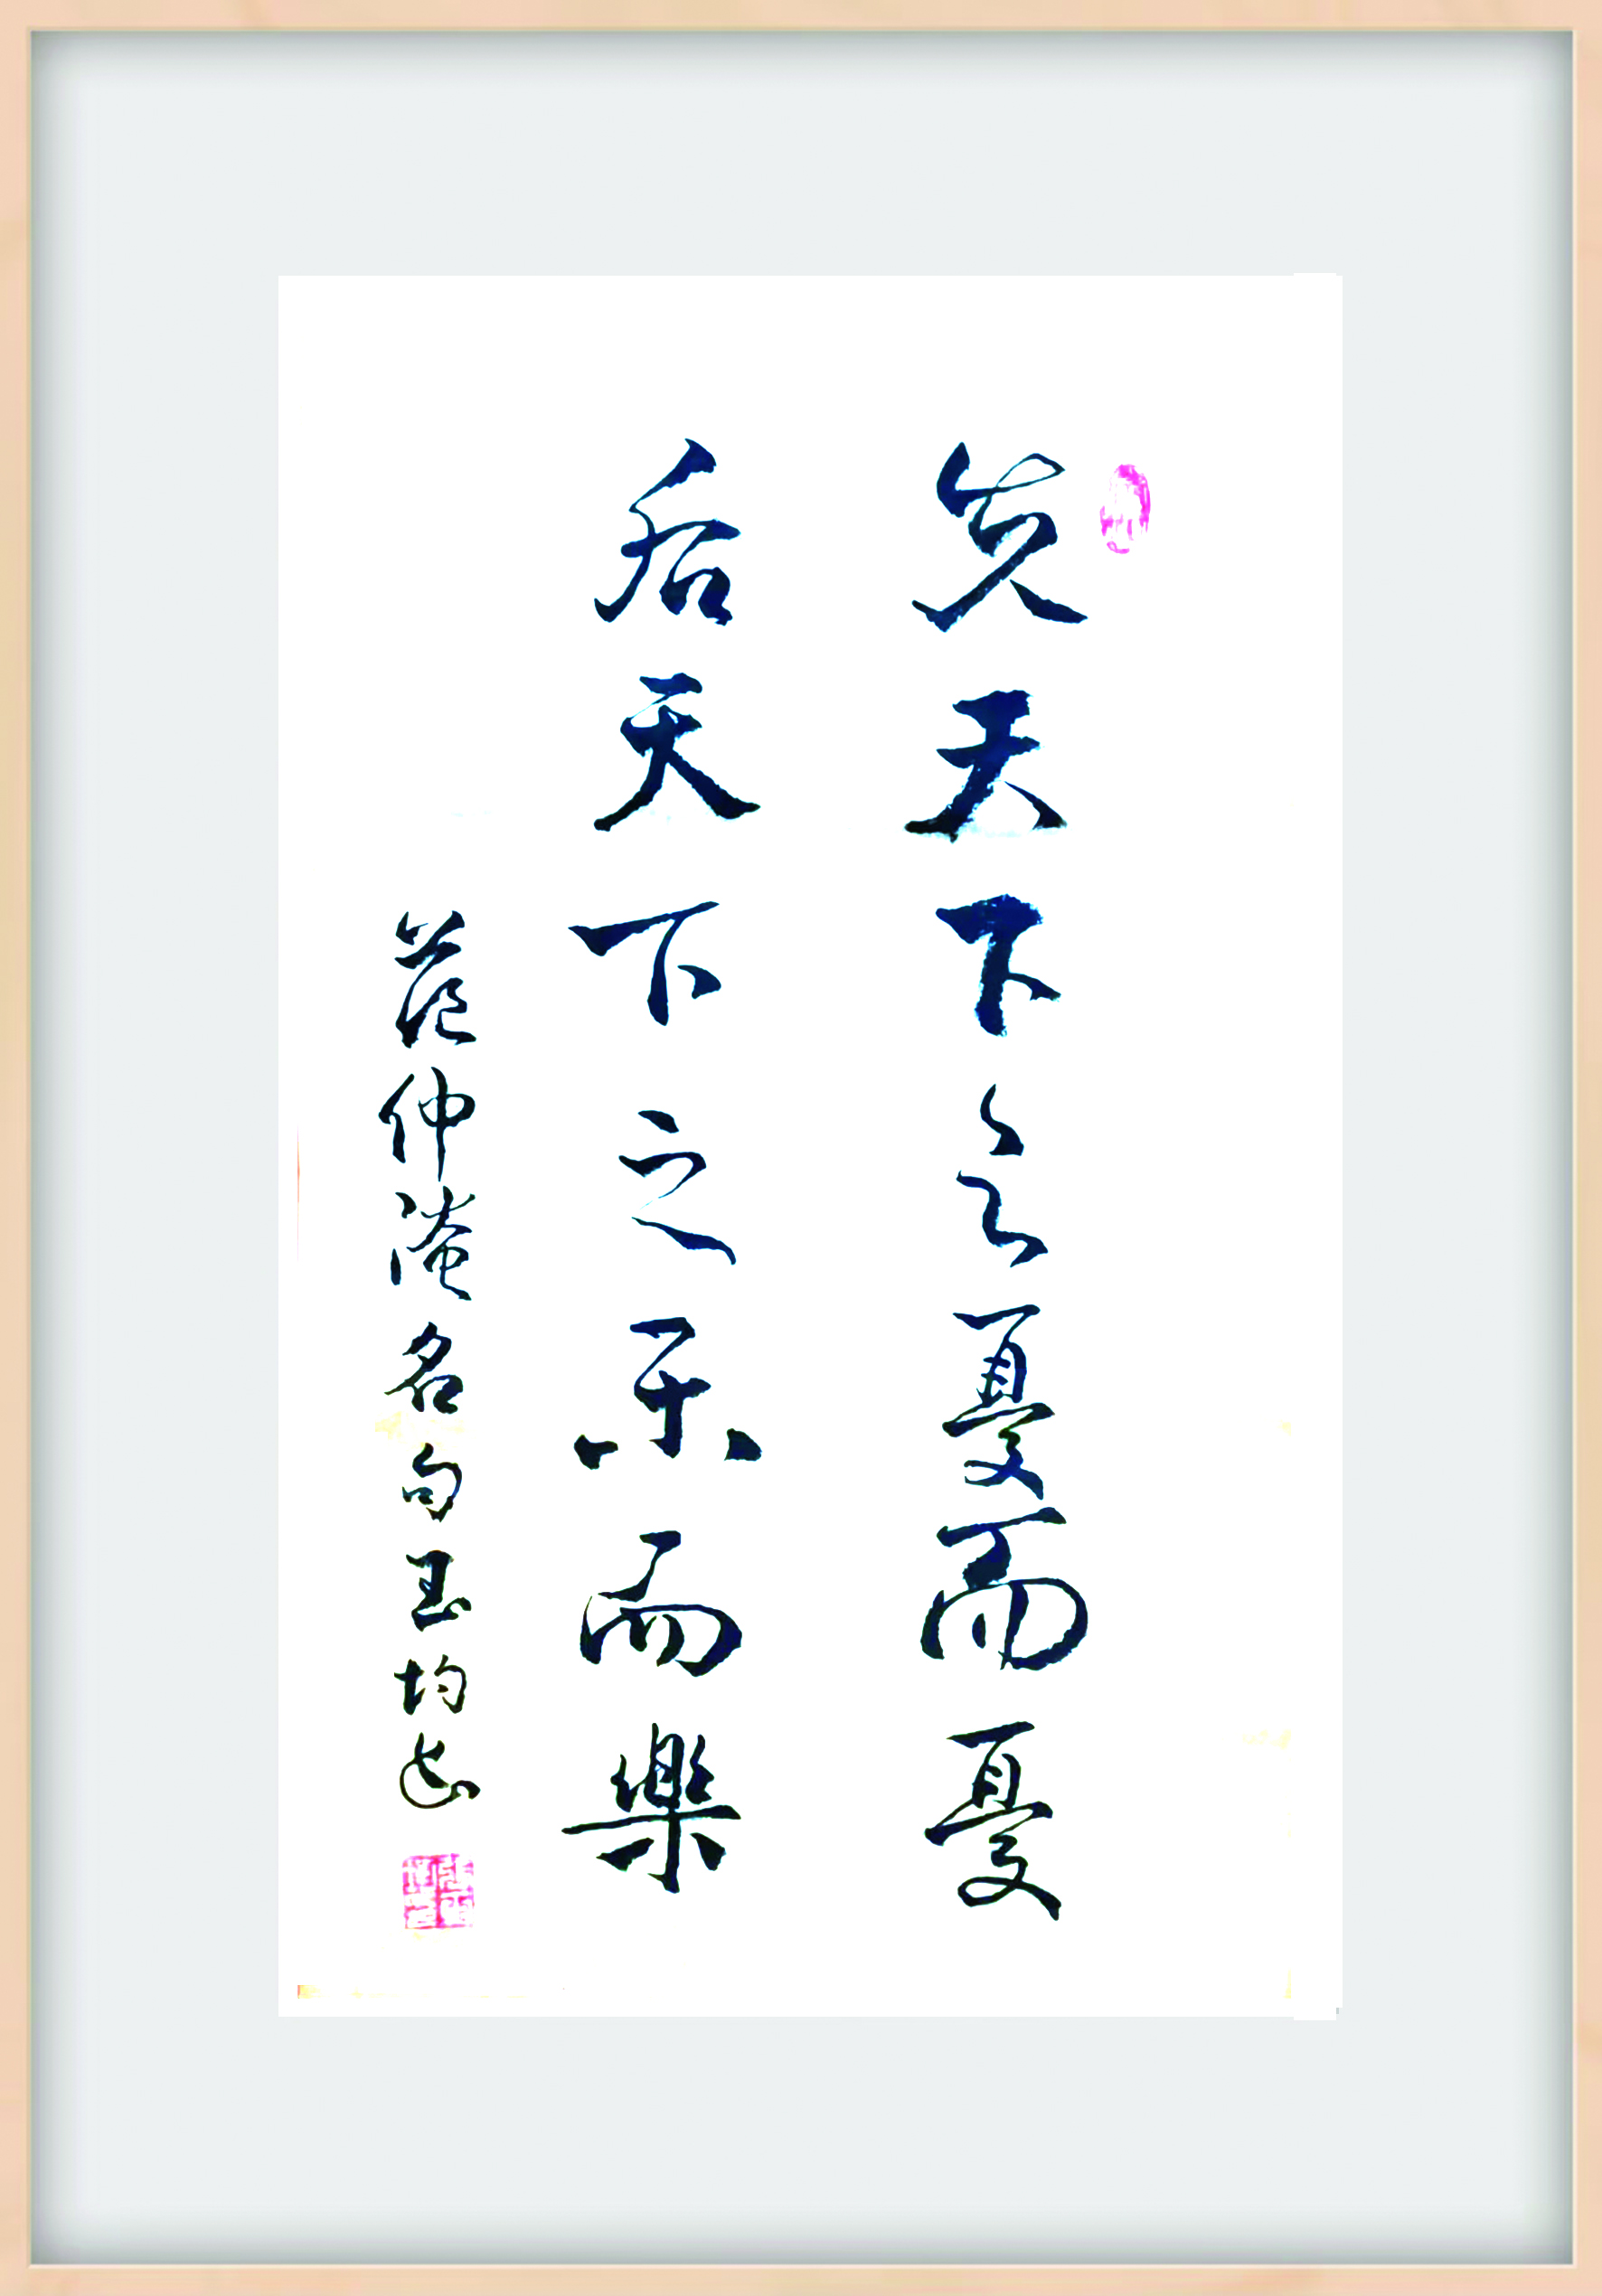 先天下之憂而憂
后天下之乐而樂
范仲淹名句玉均书